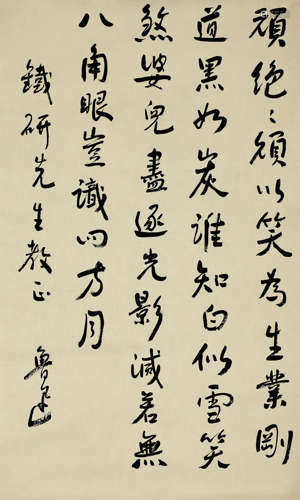 頑絕〻頑以笑為生業剛
道黑如炭誰知白似雪笑
煞婆兒盡逐光影滅若無
八角眼豈識四方月
鐵研先生教正
魯迅